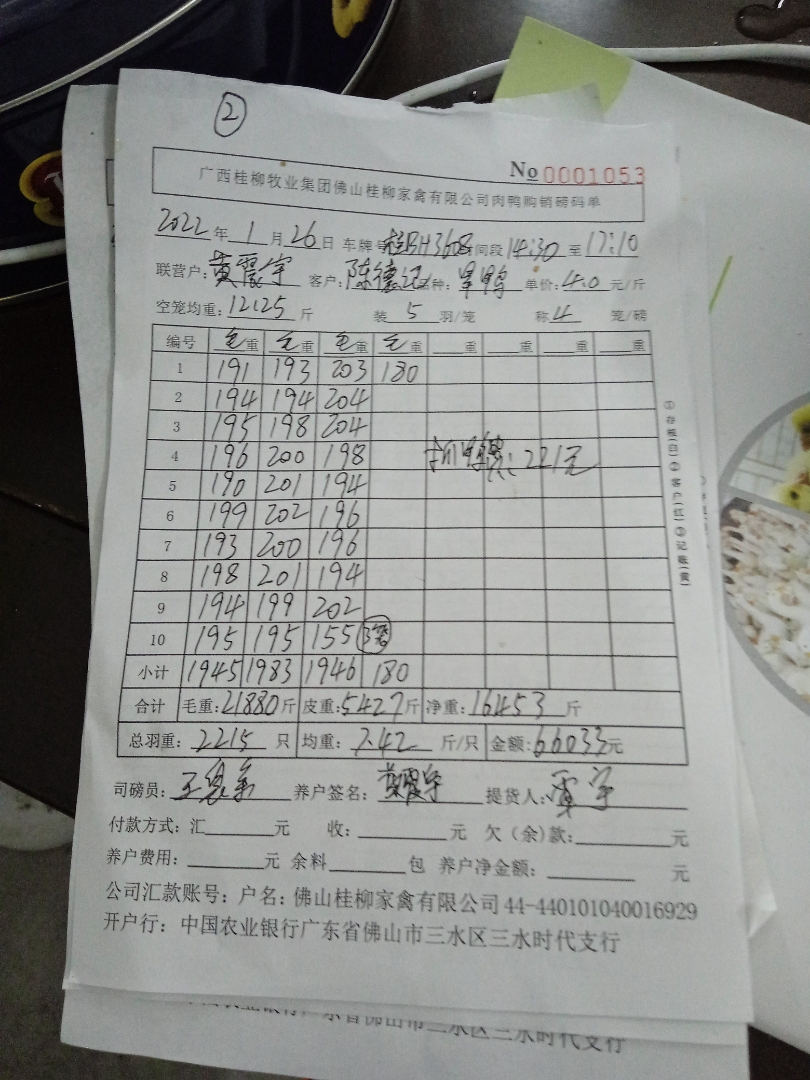 ②
No 0001053
广西桂柳牧业集团佛山桂柳家禽有限公司肉鸭购销磅码单
2022年1月26日 车牌号桂BH3608 间段14:30至17:10
联营户:黄震宇 客户:陈德记 种: 单价:4.0元/斤
空笼均重:12.25斤 装5羽/笼 称4笼/磅
编号 毛重 毛重 毛重 毛重 重 重 重 重
1 191 193 203 180
2 194 194 204
3 195 198 204
4 196 200 198 221元
5 190 201 194
6 199 202 196
7 193 200 196
8 198 201 194
9 194 199 202
10 195 195 155 3笼
小计 1945 1983 1946 180
合计 毛重:21880斤 皮重:5427斤 净重:16453斤
总羽重:2215只 均重:7.42斤/只 金额:66033元
司磅员: 养户签名:黄震宇 提货人:覃宇
付款方式:汇 元 收: 元 欠(余)款: 元
养户费用: 元 余料 包 养户净金额: 元
公司汇款账号:户名:佛山桂柳家禽有限公司 44-440101040016929
开户行:中国农业银行广东省佛山市三水区三水时代支行
①存根(白)②客户(红)③记账(黄)
佛山市三水区三水时代支行